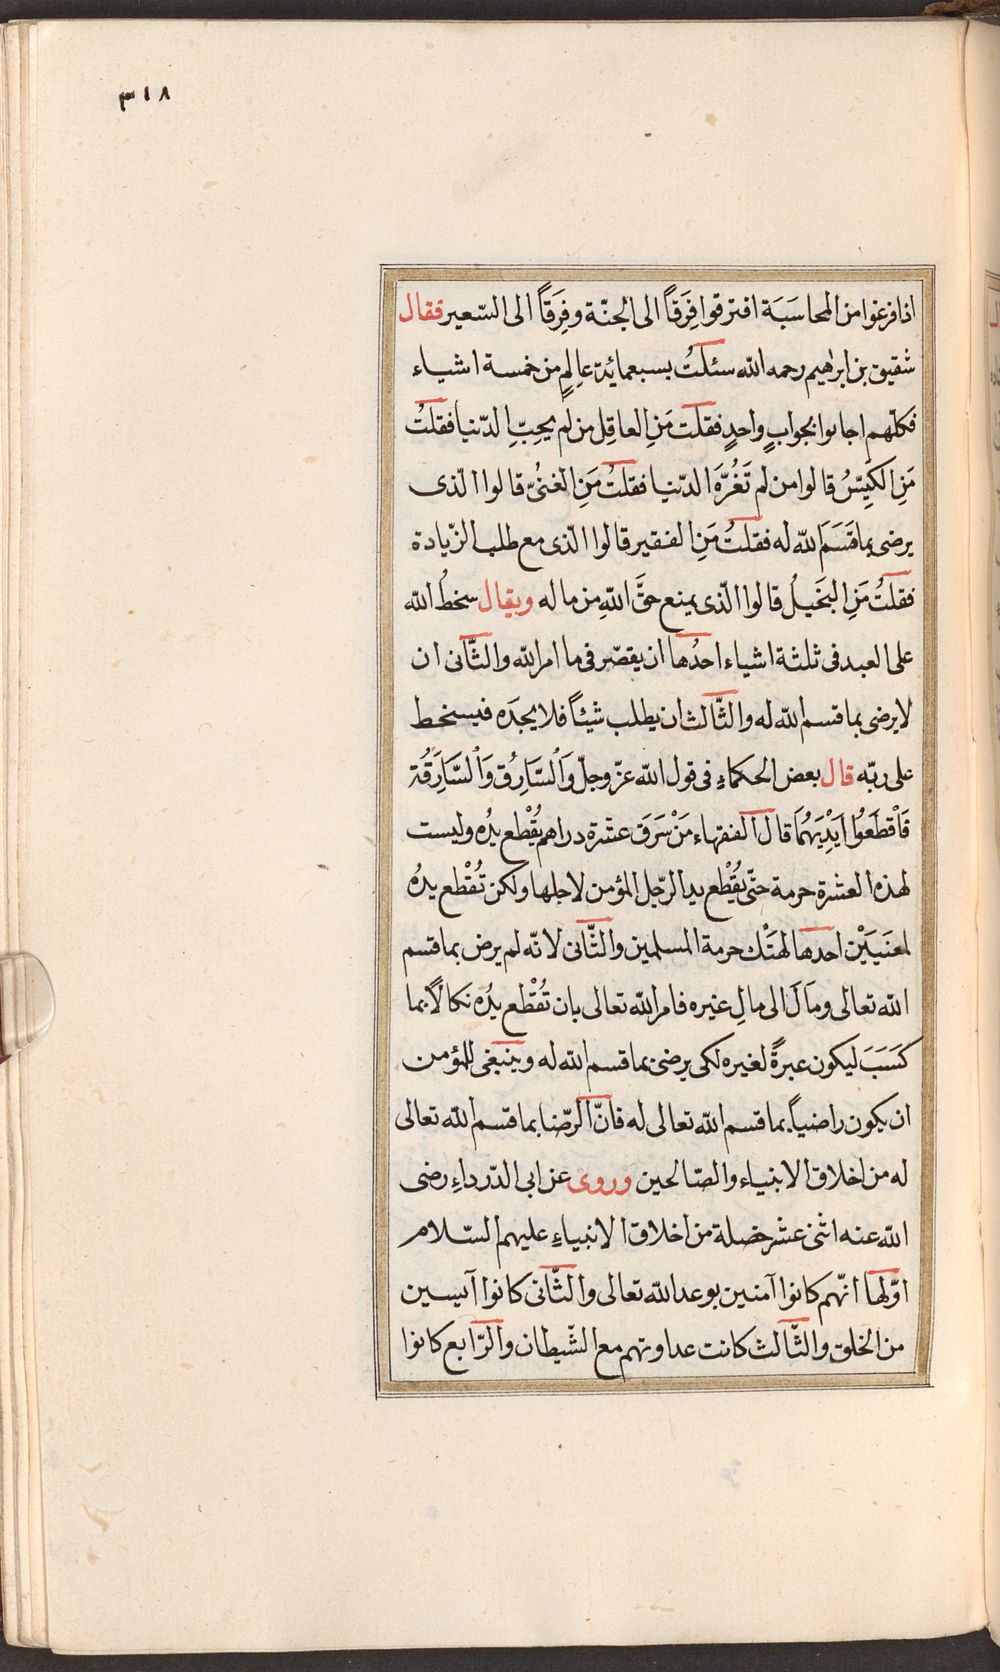 ٣١٨
اذا فرغوا من المحاسَبَة افترقوا فِرَقاً الى الجنّة وفِرَقاً الى السّعير فقال
شقيق بن ابرٰهيم رحمه الله سئلتُ بسبعمائة عالِمٍ من خمسة اشياء
فكلّهم اجابوا بجوابٍ واحدٍ فقلت مَنِ العاقِل من لم يحِبّ الدّنيا فقلتُ
مَنِ الكَيّسُ قالوا من لم تَغُرَّهَ الدّنيا فقلتُ مَنِ الغنىُّ قالوا الّذى
يرضى بما قَسَمَ الله له فقلتُ مَنِ الفقير قالوا الّذى مع طلب الزّيادة
فقلتُ مَنِ البَخيلُ قالوا الّذى يمنع حقَّ اللّهِ من ماله ويقال سخطُ الله
على العبد فى ثلثة اشياء احدُها ان يقصّر فى ما امر الله والثّانى ان
لا يرضى بما قسم الله له والثّالث ان يطلب شيئاً فلا يجدَه فيسخط
على ربّه قال بعض الحكماءِ فى قول الله عزّ وجلّ وَٱلسَّارِقُ وَٱلسَّارِقَةُ
فَٱقْطَعُوا اَيْدِيَهُمَا قال الفقهاء مَنْ سَرَقَ عشرة دراهم يُقْطع يدُه وليست
لهذه العشرة حرمة حتّى يُقْطع يد الرّجل المؤمن لاجلها ولكن تُقْطع يدُه
لمعنَيَيْن احدها لهَتْك حرمة المسلمين والثّانى لانّه لم يرض بما قسم
الله تعالى ومَالَ الى مالِ غيره فامر الله تعالى بان تُقْطع يدُه نكالاً بما
كَسَبَ ليكون عبرةً لغيره لكى يرضى بما قسم الله له وينبغى للمؤمن
ان يكون راضياً بما قسم الله تعالى له فانّ الرّضا بما قسم الله تعالى
له من اخلاق الانبياء والصّالحين وروى عن ابى الدّرداءِ رضى
الله عنه اثنى عشر خصلة من اخلاق الانبياءِ عليهم السّلام
اوّلها انّهم كانوا آمنين بوعد الله تعالى والثّانى كانوا آيسين
من الخلق والثّالث كانت عداوتهم مع الشّيطان والرّابع كانوا